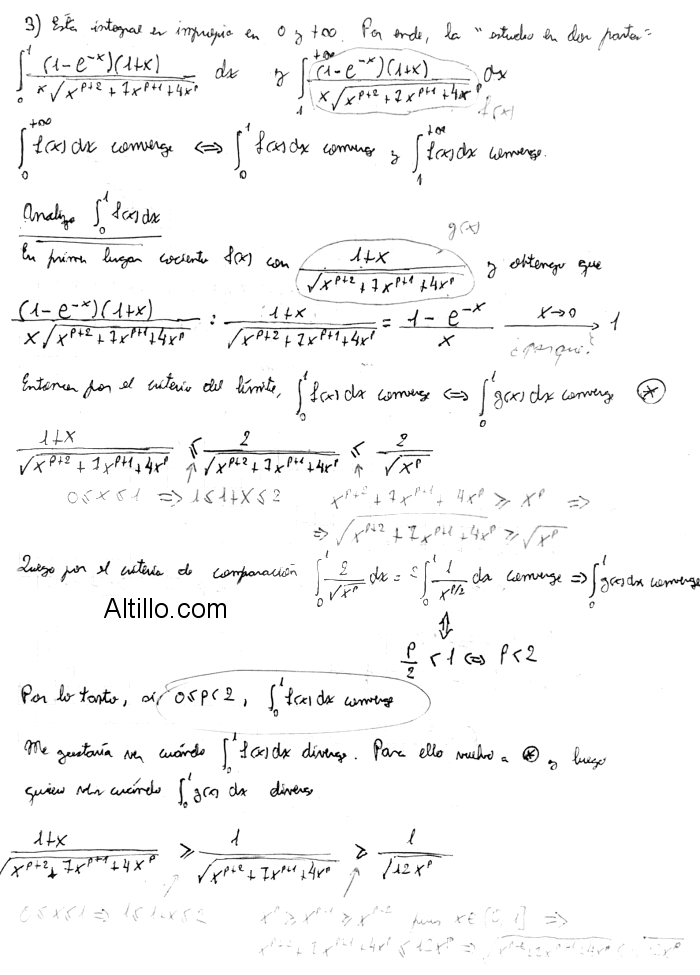 3) Esta integral es impropia en 0 y +∞. Por ende, la "estudio en dos partes =
∫₀¹ (1-e^{-x})(1+x) / (x√(x^{p+2}+7x^{p+1}+4x^p)) dx y ∫₁^{+∞} (1-e^{-x})(1+x) / (x√(x^{p+2}+7x^{p+1}+4x^p)) dx
f(x)
∫₀^{+∞} f(x) dx converge ⟺ ∫₀¹ f(x) dx converge y ∫₁^{+∞} f(x) dx converge.
Analizo ∫₀¹ f(x) dx
g(x)
En primer lugar cociento f(x) con (1+x) / √(x^{p+2}+7x^{p+1}+4x^p) y obtengo que
(1-e^{-x})(1+x) / (x√(x^{p+2}+7x^{p+1}+4x^p)) : (1+x) / √(x^{p+2}+7x^{p+1}+4x^p) = (1-e^{-x}) / x → 1
x→0
¿porqué?
Entonces por el criterio del límite, ∫₀¹ f(x) dx converge ⟺ ∫₀¹ g(x) dx converge ⊛
(1+x) / √(x^{p+2}+7x^{p+1}+4x^p) ≤ 2 / √(x^{p+2}+7x^{p+1}+4x^p) ≤ 2 / √(x^p)
0≤x≤1 ⟹ 1≤1+x≤2 x^{p+2}+7x^{p+1}+4x^p ≥ x^p ⟹
⟹ √(x^{p+2}+7x^{p+1}+4x^p) ≥ √(x^p)
Luego por el criterio de comparación ∫₀¹ 2/√(x^p) dx = 2∫₀¹ 1/x^{p/2} dx converge ⟹ ∫₀¹ g(x) dx converge
Altillo.com
⇕
p/2 < 1 ⟺ p<2
Por lo tanto, si 0≤p<2, ∫₀¹ f(x) dx converge
Me gustaría ver cuándo ∫₀¹ f(x) dx diverge. Para ello vuelvo a ⊛ y luego
quiero ver cuándo ∫₀¹ g(x) dx diverge
(1+x) / √(x^{p+2}+7x^{p+1}+4x^p) ≥ 1 / √(x^{p+2}+7x^{p+1}+4x^p) ≥ 1 / √(12x^p)
0≤x≤1 ⟹ 1≤1+x≤2 x^p ≥ x^{p+1} ≥ x^{p+2} pues x∈[0,1] ⟹
x^{p+2}+7x^{p+1}+4x^p ≤ 12x^p ⟹